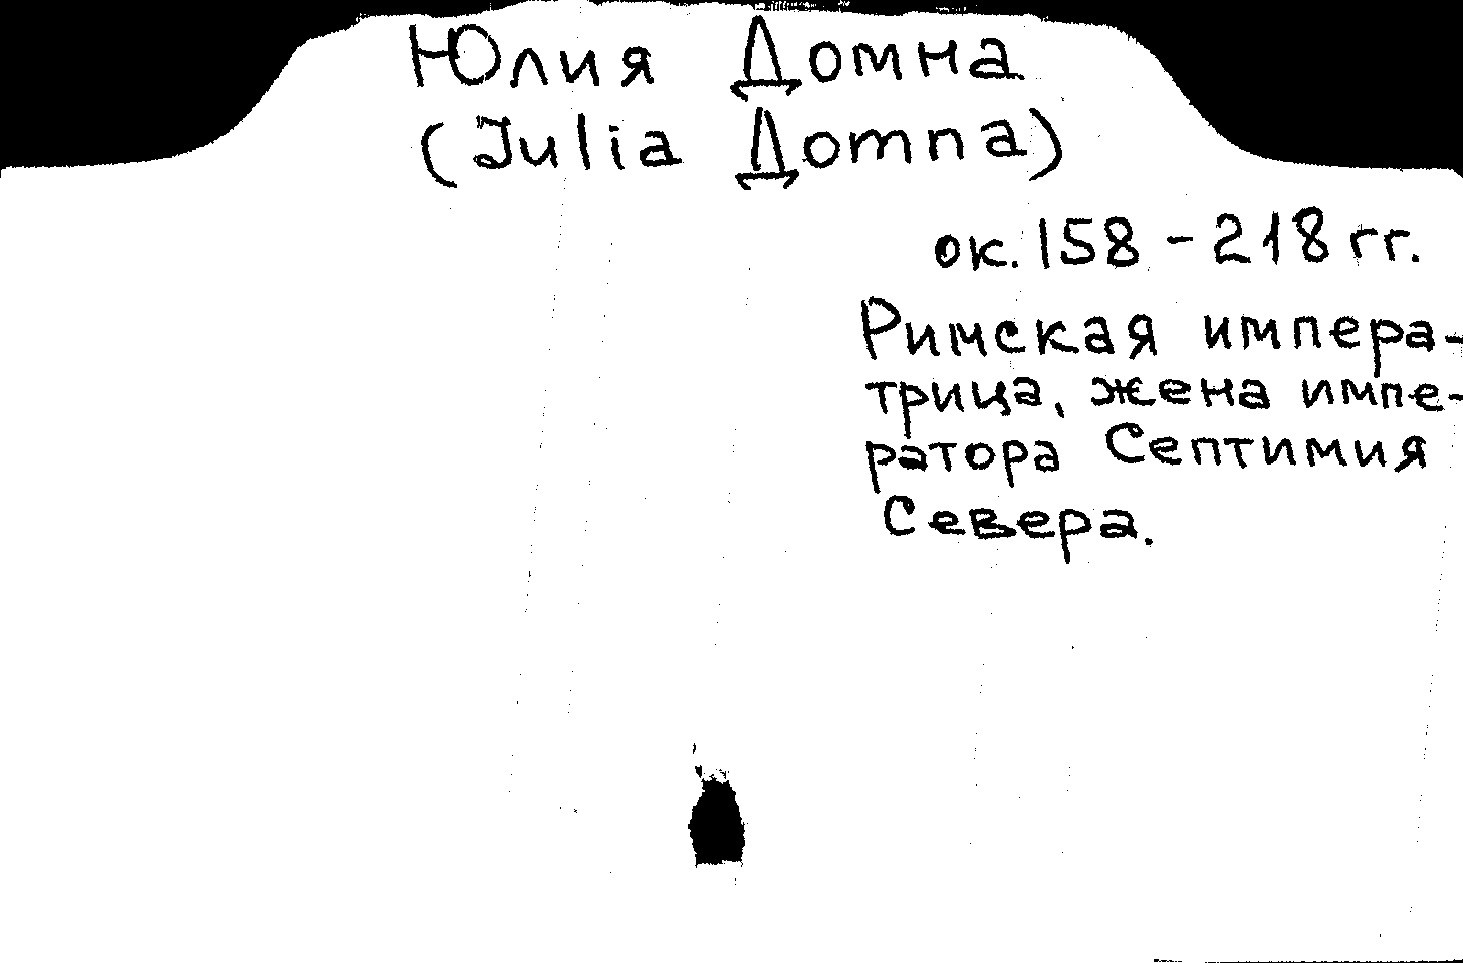 Юлия Домна
(Julia Домna)
ок. 158 - 218 гг.
Римская импера-
трица, жена импе-
ратора Септимия
Севера.